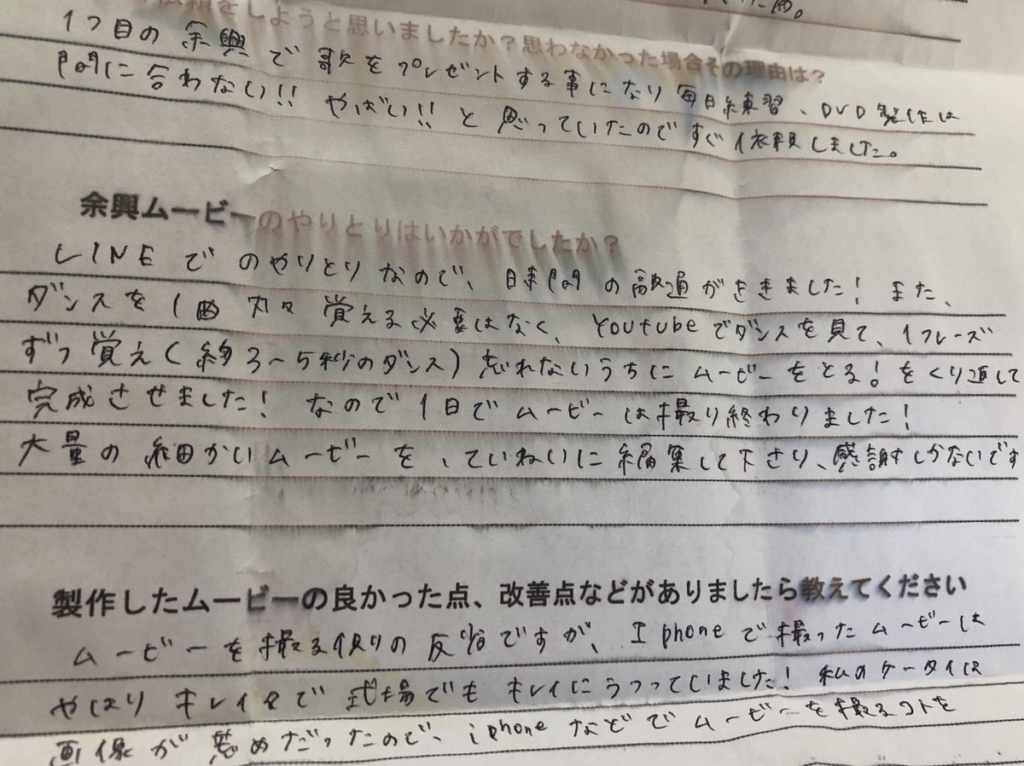 依頼をしようと思いましたか?思わなかった場合その理由は?
1つ目の余興で歌をプレゼントする事になり毎日練習、DVD
間に合わない!! やばい!! と思っていたのですぐ依頼しました。
余興ムービーのやりとりはいかがでしたか?
LINEでのやりとりなので、時間の融通がききました! また、
ダンスを1曲丸々覚える必要はなく、Youtubeでダンスを見て、1フレーズ
ずつ覚え(約3〜5秒のダンス)忘れないうちにムービーをとる!をくり返して
完成させました! なので1日でムービーは撮り終わりました!
大量の細かいムービーを、ていねいに編集して下さり、感謝しかないです
製作したムービーの良かった点、改善点などがありましたら教えてください
ムービーを撮る側の反省ですが、Iphoneで撮ったムービーは
やはりキレイで式場でもキレイにうつっていました! 私のケータイは
画像が悪めだったので、iphoneなどでムービーを撮るコトを